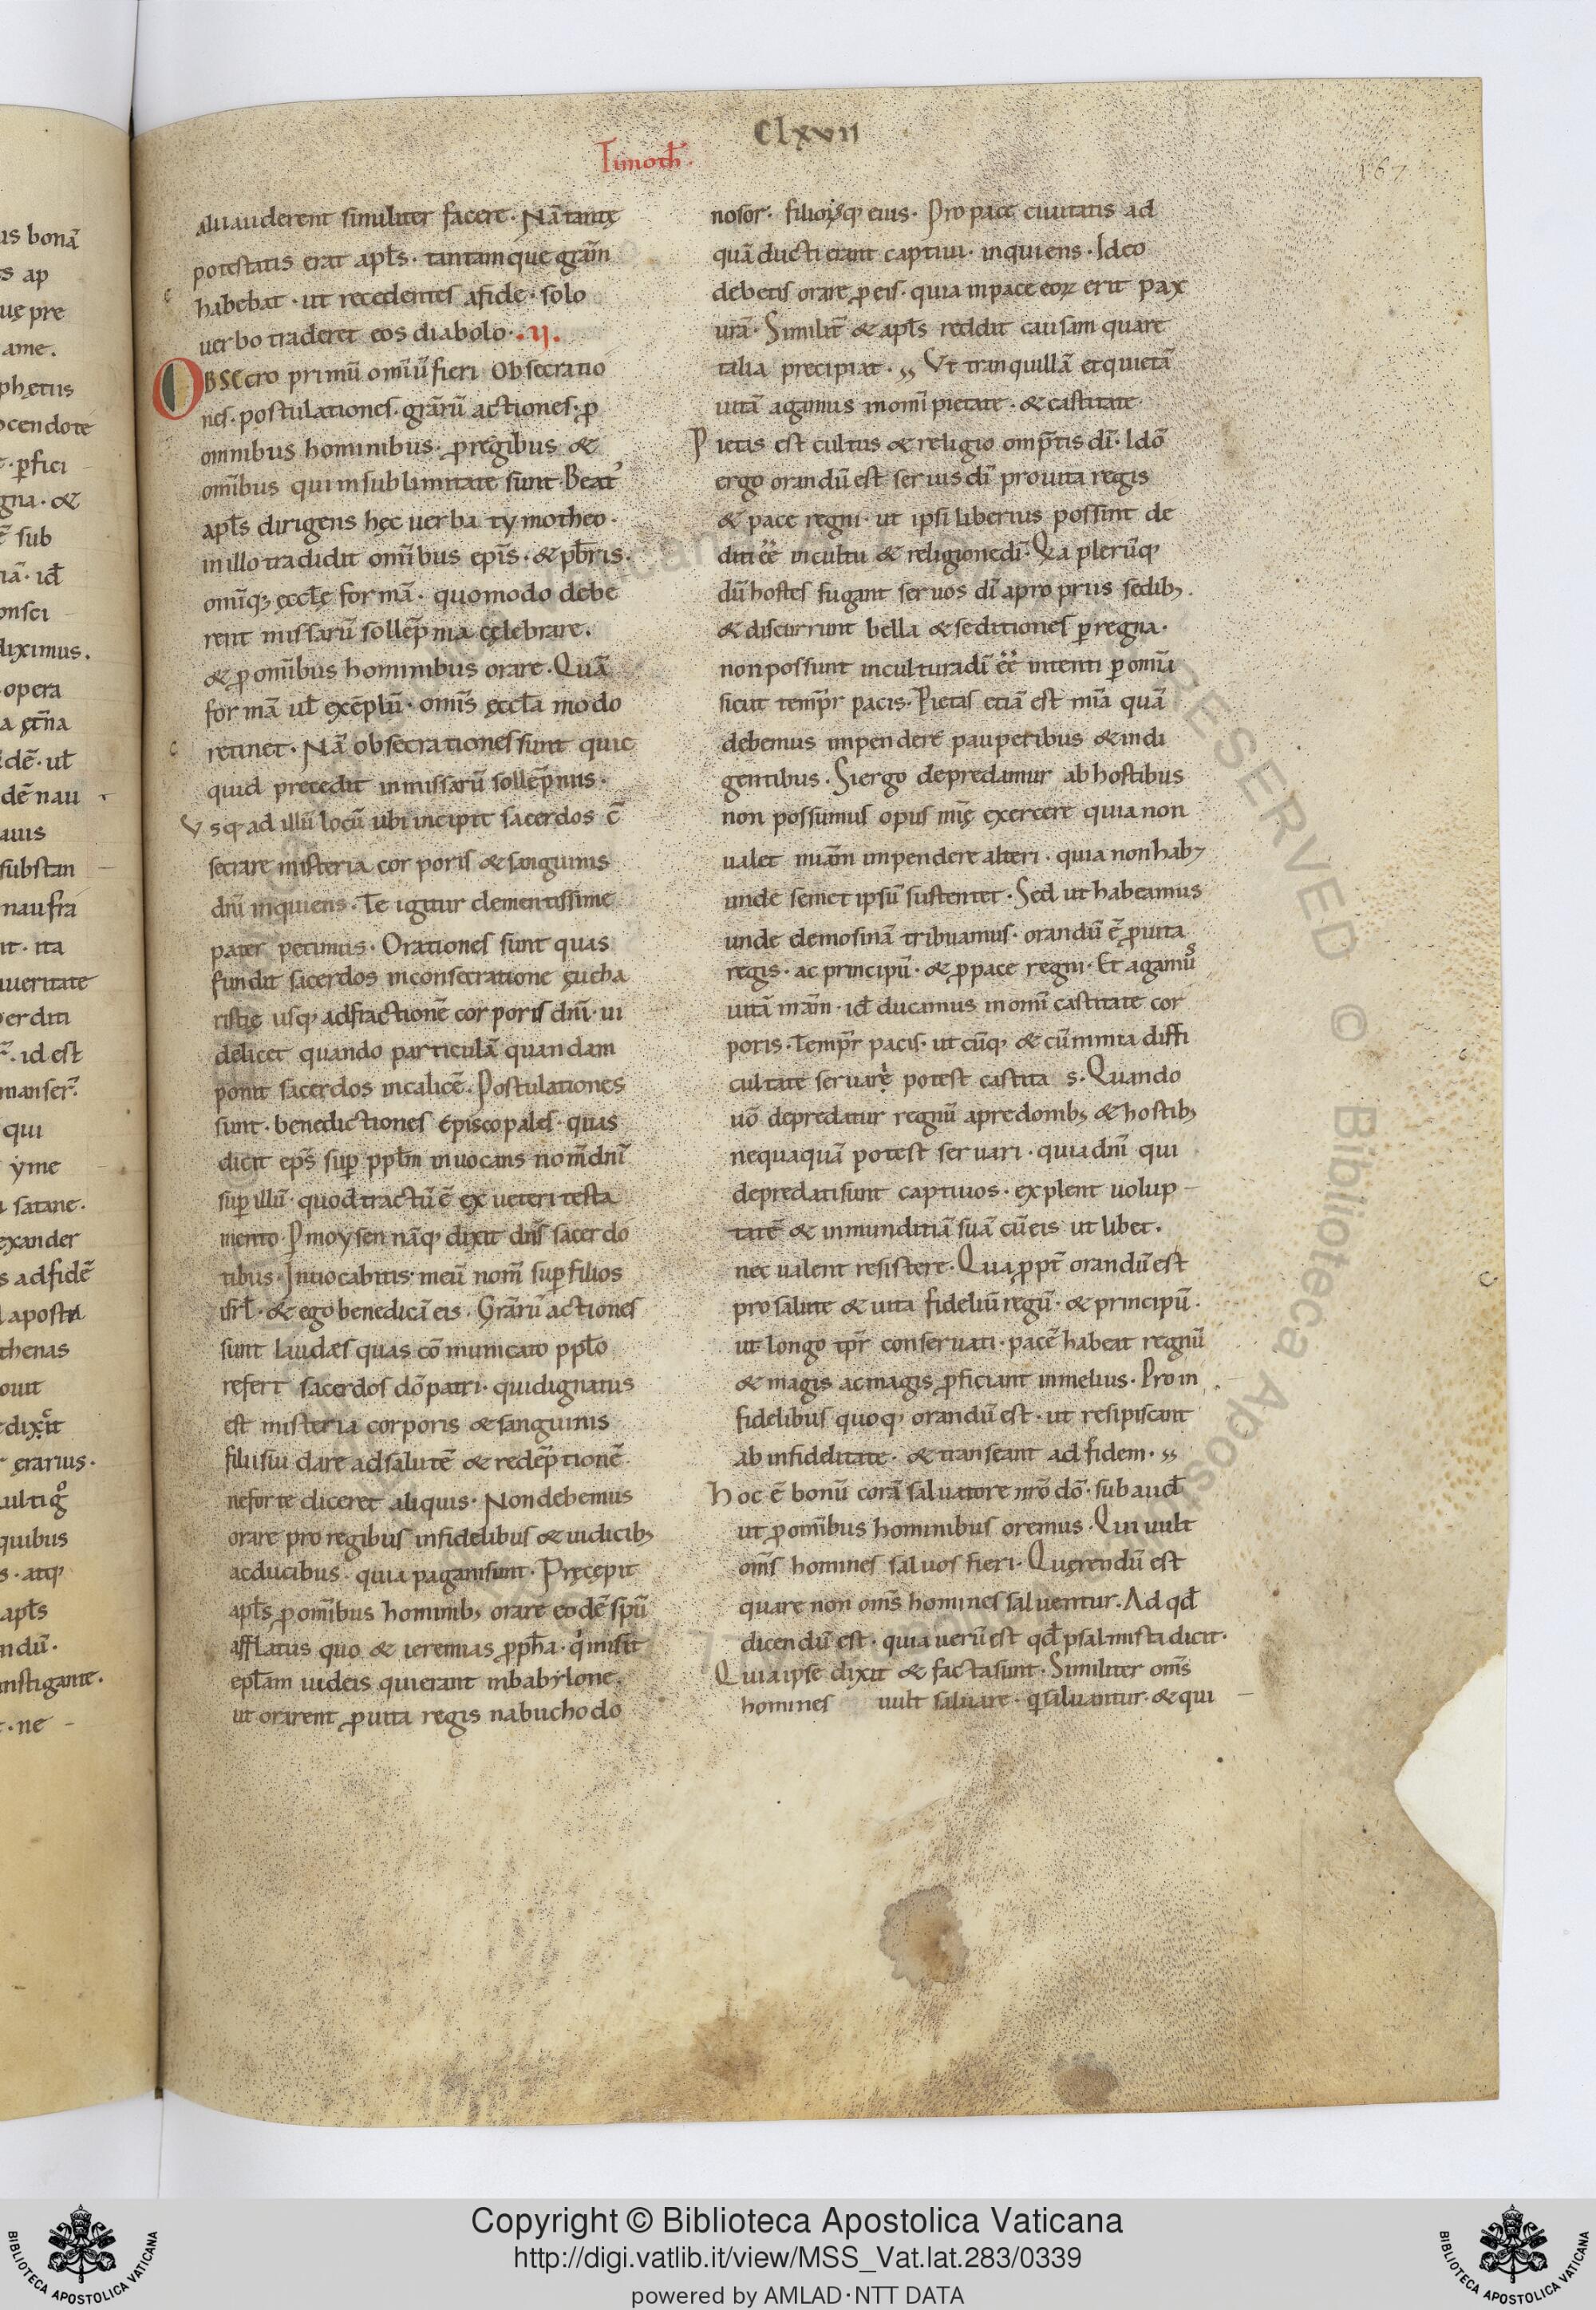 Clxvii
Timoth̄.
167
alii auderent similiter facere. Nā tantę
potestatis erat apl̄s. tantamque grām̄
habebat. ut recedentes a fide. solo
uerbo traderet eos diabolo. .ıı.
OBSecro primū omīū fieri obsecratio
nes. postulationes. grārū actiones. ꝓ
omnibus hominibus. ꝓ regibus &
om̄ibus qui in sublimitate sunt. Beat᾽
apl̄s dirigens hęc uerba tymotheo.
in illo tradidit om̄ibus epīs. & pb̄ris.
om̄iq; ęccl̄ę formā. quomodo debe
rent missarū sollēpnia cęlebrare.
& ꝓ om̄ibus hominibus orare. Quā
formā ul̄ exēplū. om̄is ęccl̄a modo
retinet. Nā obsecrationes sunt quic
quid precedit in missarū sollēpniis.
Vsq; ad illū locū ubi incipit sacerdos c̄
secrare misteria corporis & sanguinis
dn̄i inquiens. Te igitur clementissime
pater petimus. Orationes sunt quas
fundit sacerdos in consecratione eucha
ristię usq; ad fractionē corporis dn̄i. ui
delicet quando particulā quandam
ponit sacerdos in calicē. Postulationes
sunt. benedictiones episcopales. quas
dicit ep̄s sup ppl̄m inuocans nom̄ dn̄i
sup illū. quod tractū ē ex ueteri testa
mento. P moysen nāq; dixit dn̄s sacerdo
tibus. Inuocabitis. meū nom̄ sup filios
isrl̄. & ego benedicā eis. Grārū actiones
sunt laudes quas cōmunicato ppl̄o
refert sacerdos dō patri. qui dignatus
est misteria corporis & sanguinis
filii sui dare ad salutē & redēptionē.
ne forte diceret aliquis. Non debemus
orare pro regibus infidelibus & iudicib;
ac ducibus. quia pagani sunt. Pręcepit
apl̄s ꝓ om̄ibus hominib; orare eodē sp̄u
afflatus quo & ieremias ppħa. q̇ misit
epl̄am iudeis qui erant in babylone.
ut orarent ꝓ uita regis nabuchodo
nosor. filiorꝫq; eius. Pro pace ciuitatis ad
quā ducti erant captiui. inquiens. Ideo
debetis orare ꝓ eis. quia in pace eoꝝ erit pax
urā. Similit̄ & apl̄s reddit causam quare
talia precipiat. ,, Vt tranquillā et quietā
uitā agamus in om̄i pietate. & castitate.
Pietis est cultus & religio omp̄tis dī. Idō
ergo orandū est seruis dī pro uita regis
& pace regni. ut ipsi liberius possint de
diti ēē in cultu & religione dī. Qa plerūq;
dū hostes fugant seruos dī a propriis sedib;.
& discurrunt bella & seditiones p regna.
non possunt in cultura dī ēē intenti p om̄ia
sicut temp̄r pacis. Pietas etiā est mīa quā
debemus impendere pauperibus & indi
gentibus. Si ergo depredamur ab hostibus
non possumus opus mīę exercere quia non
ualet miām̄ impendere alteri. quia non hab;
unde semet ipsū sustentet. Sed ut habeamus
unde elemosinā tribuamus. orandū ē ꝓ uita
regis. ac principū. & ꝓ pace regni. Et agamus
uitā nrām̄. id̄ ducamus in om̄i castitate cor
poris. Temp̄r pacis. ut cūq; & cū nimia diffi
cultate seruare potest castitas. Quando
uō depredatur regnū a predonib; & hostib;
nequaquā potest seruari. quia dn̄i qui
depredati sunt captiuos. explent uolup
tatē & inmunditiā suā cū eis ut libet.
nec ualent resistere. Qua ꝓpt̄ orandū est
pro salute & uita fideliū regū. & principū.
ut longo tp̄r conseruati. pacē habeat regnū
& magis ac magis ꝓficiant in melius. Pro in
fidelibus quoq; orandū est. ut resipiscant
ab infidelitate. & transeant ad fidem. ,,
Hoc ē bonū corā saluatore nrō dō. subaud̄
ut ꝓ om̄ibus hominibus oremus. Qui uult
om̄s homines saluos fieri. Querendū est
quare non om̄s homines saluentur. Ad qd̄
dicendū est. quia uerū est qd̄ psalmista dicit.
Quia ipse dixit & facta sunt. Similiter om̄s
homines uult saluare. q̇ saluantur. & qui
Copyright © Biblioteca Apostolica Vaticana
http://digi.vatlib.it/view/MSS_Vat.lat.283/0339
powered by AMLAD·NTT DATA